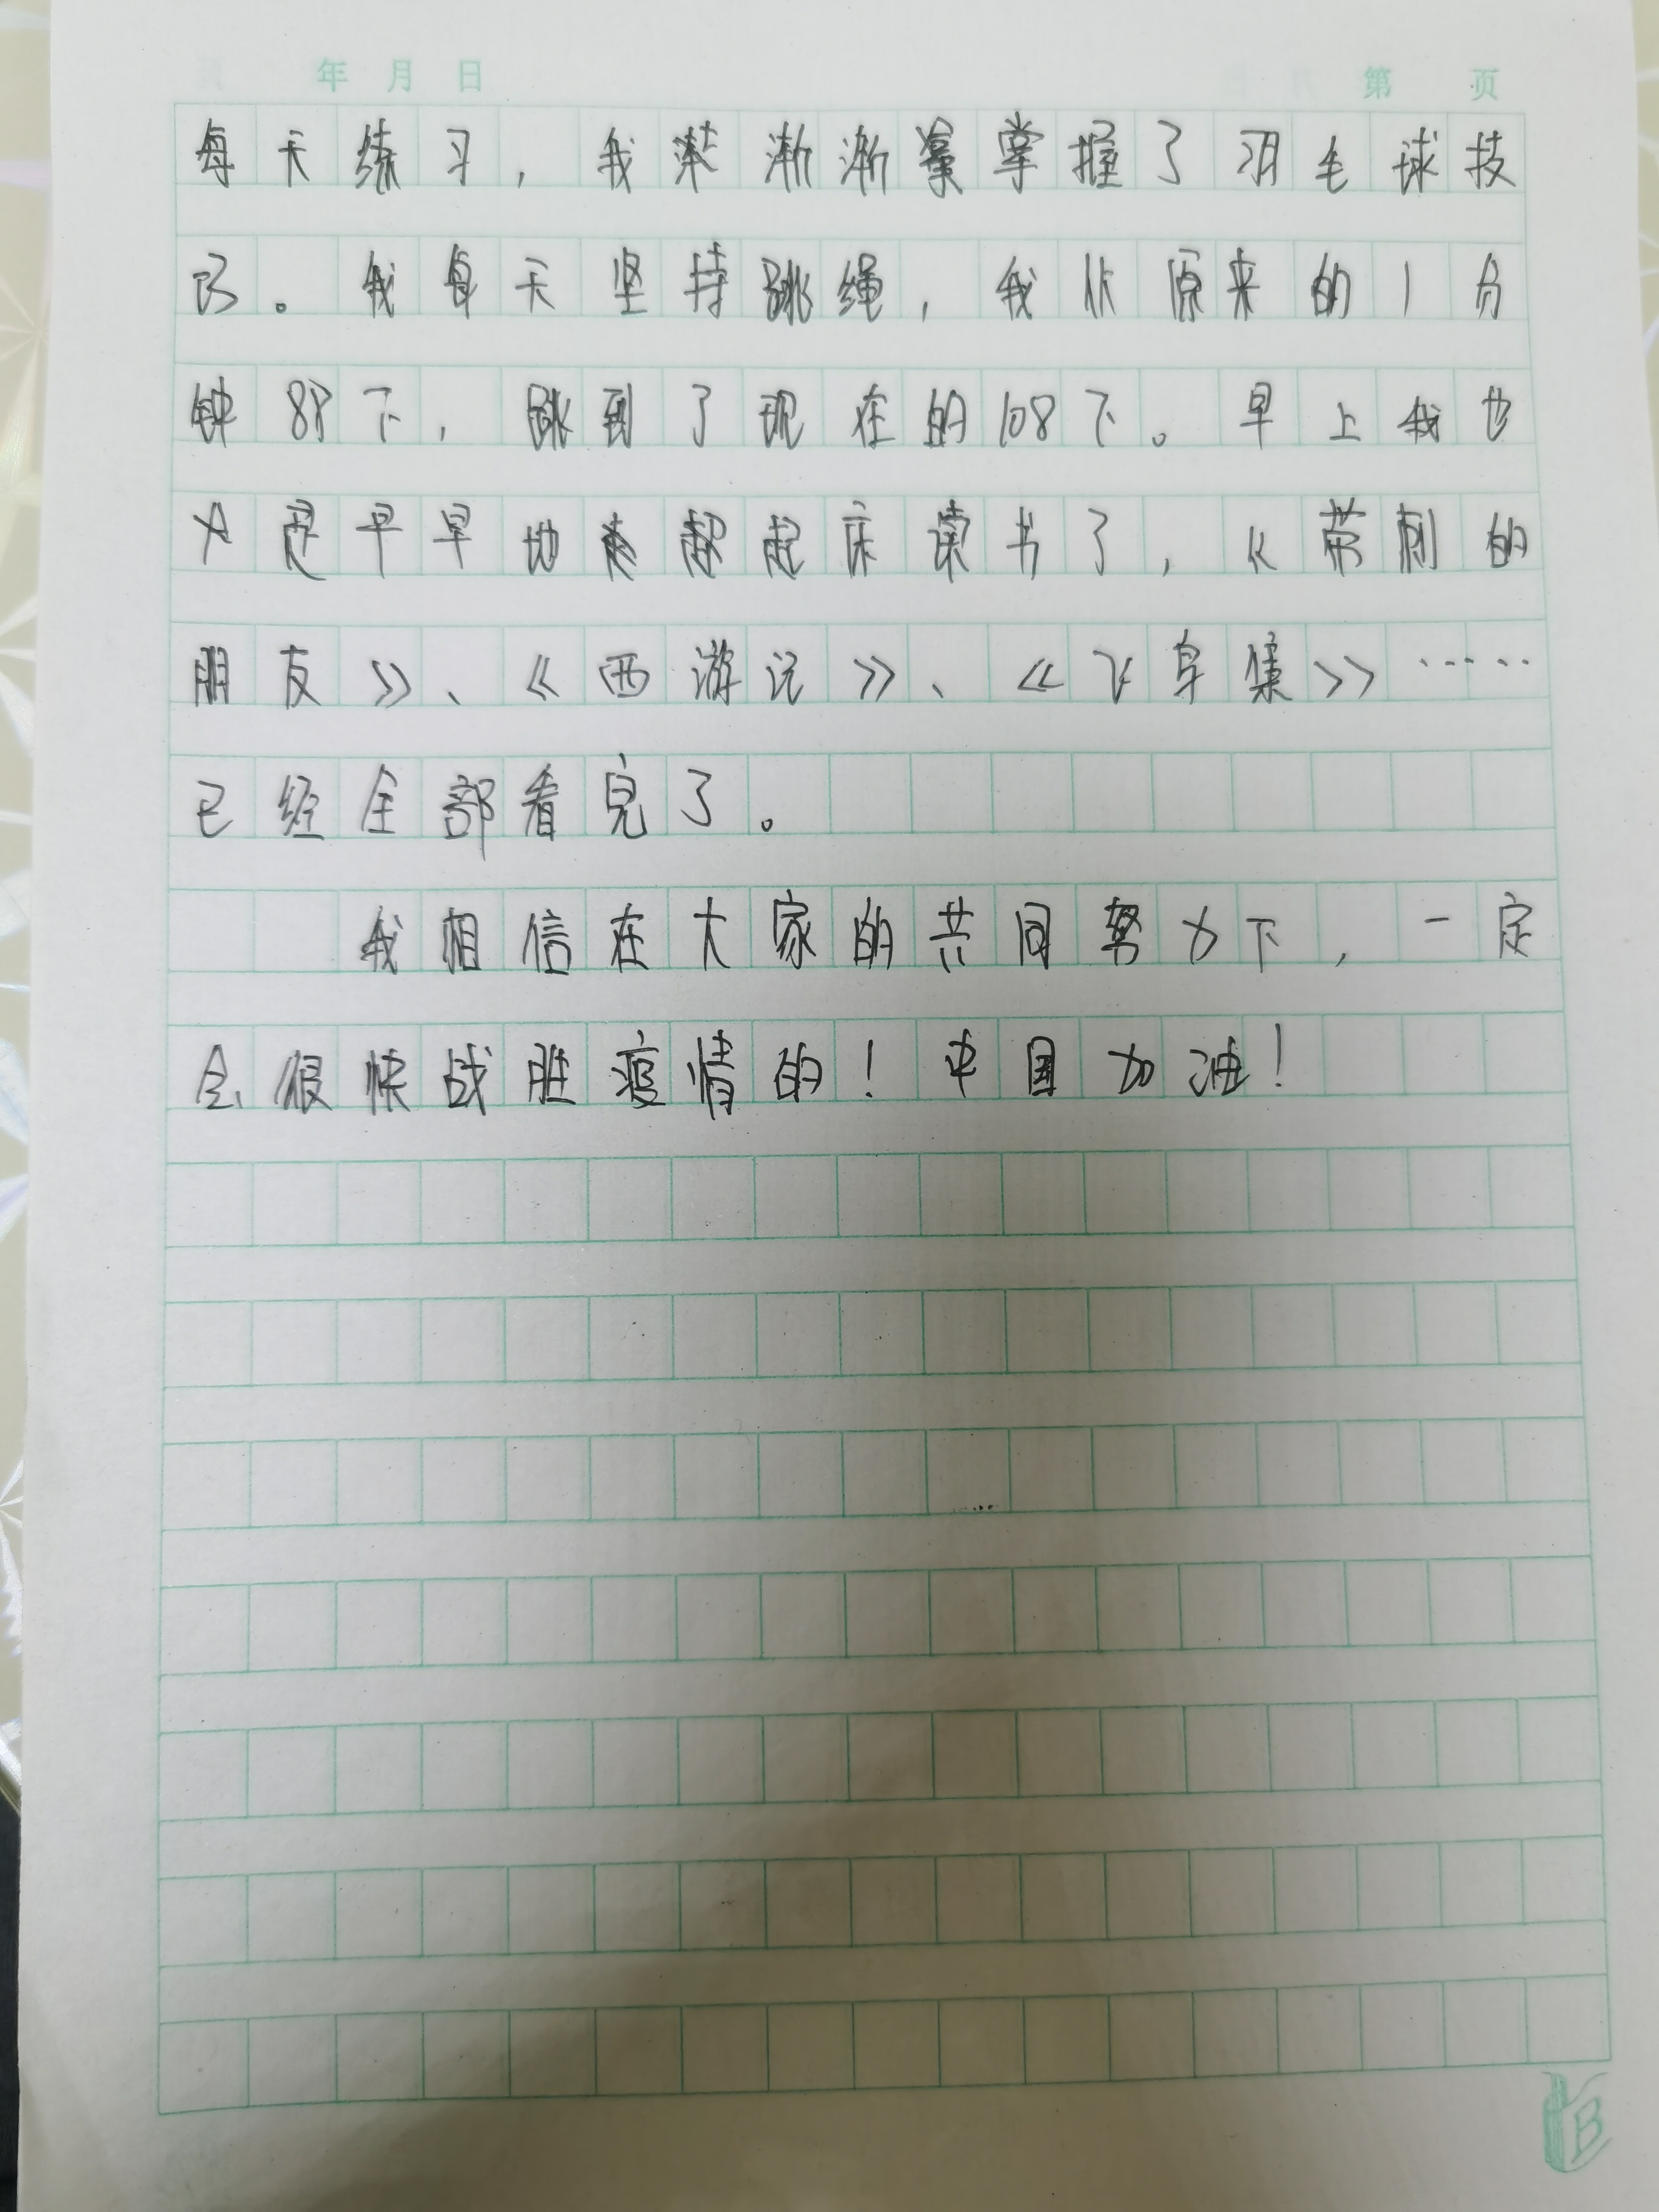 年 月 日 第 页
每天练习，我渐渐掌握了羽毛球技
巧。我每天坚持跳绳，我从原来的1分
钟88下，跳到了现在的108下。早上我也
是早早地起床读书了，《带刺的
朋友》、《西游记》、《飞鸟集》……
已经全部看完了。
我相信在大家的共同努力下，一定
会很快战胜疫情的！中国加油！
B